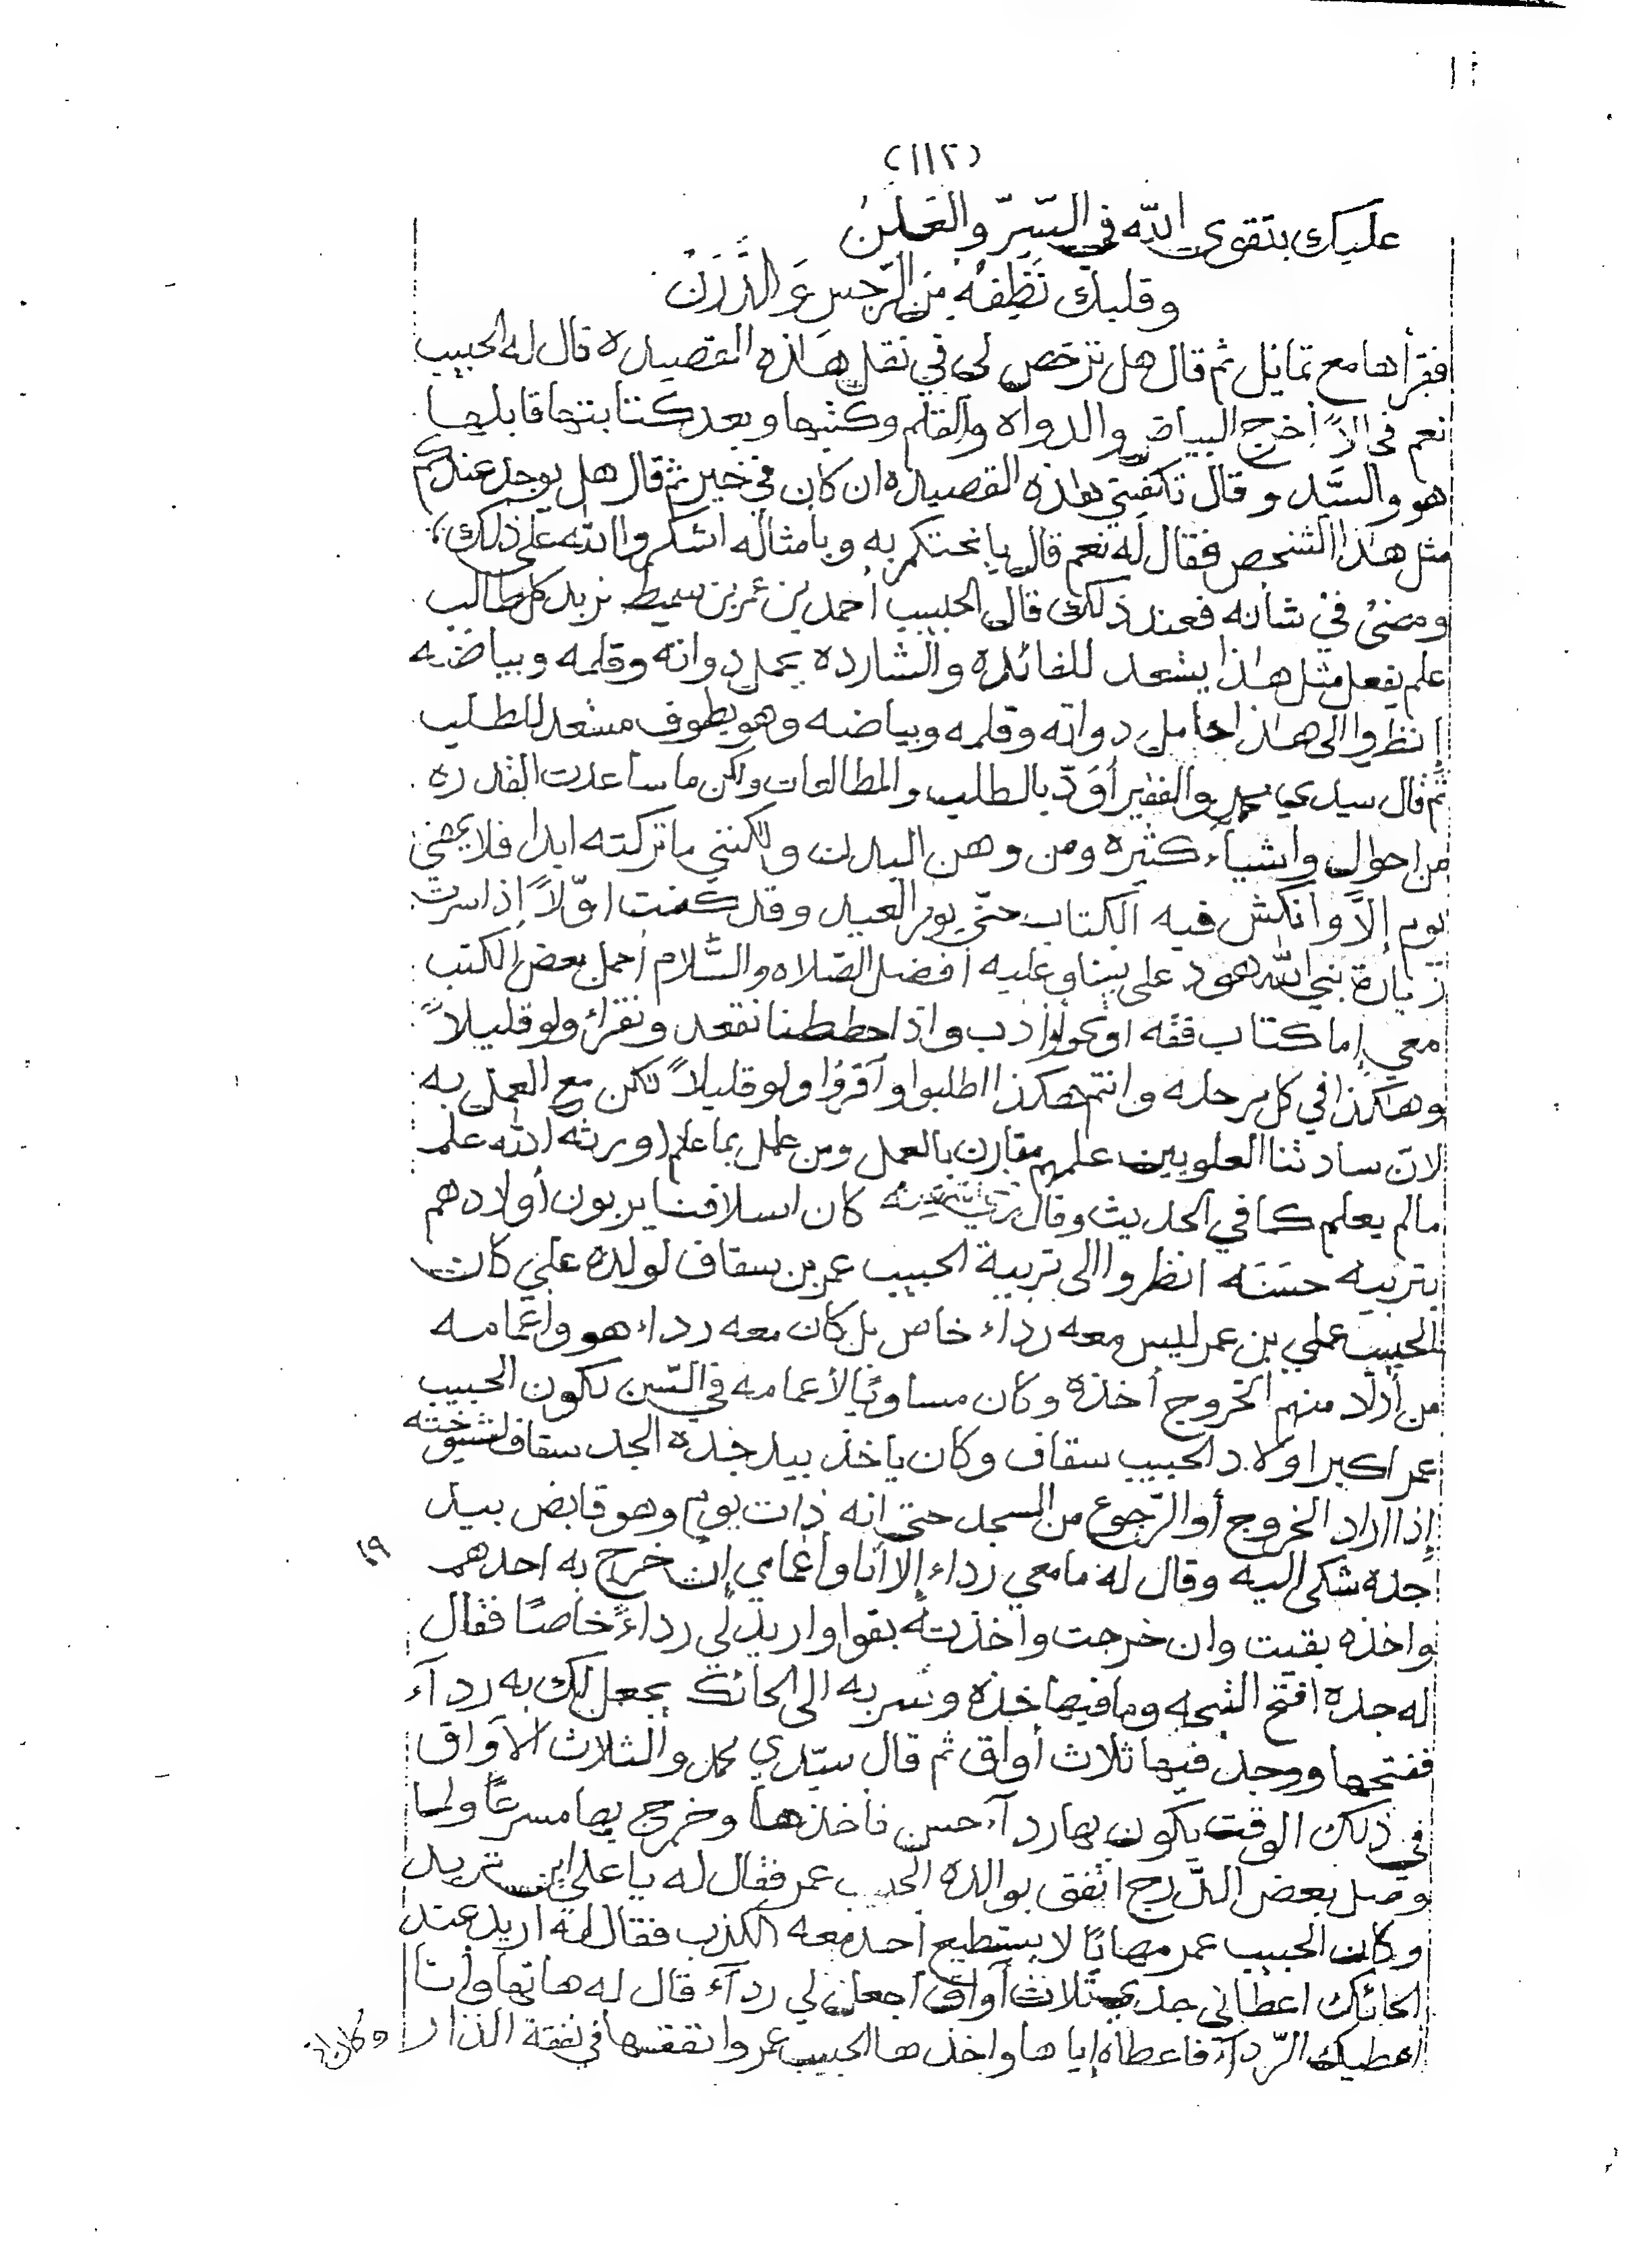 (١١٢)
عليك بتقوى الله في السّرّ والعَلَنْ
وقلبك نَظِّفهُ مِنَ الرّجسِ وَالدَّرَنْ
فقرأها مع تمايل ثم قال هل ترخص لي في نقل هذه القصيده قال له الحبيب
نعم في الاً أخرج البياض والدواه والقلم وكتبها وبعد كتابتها قابلها
هو والسيّد وقال تكفيني هذه القصيده ان كان في خير ثم قال هل يوجد عندكم
مثل هذا الشخص فقال له نعم قال يا بختكم به وبأمثاله اشكروا الله على ذلك
ومضى في شأنه فعند ذلك قال الحبيب أحمد بن عمر بن سميط نريد كل طالب
علم يفعل مثل هذا يستعد للفائده والشارده يحمل دواته وقلمه وبياضه
إنظروا الى هذا حامل دواته وقلمه وبياضه وهو يطوف مستعد للطلب
ثم قال سيدي محمد والفقير أوَدّ بالطلب والمطالعات ولكن ما ساعدت القدره
من احوال واشياء كثيره ومن وهن البدن ولاكنني ما تركته ابدا فلا يمضي
يوم إلاَّ وانكش فيه الكتاب حتى يوم العيد وقد كنت اوّلاً إذا سرت
زيارة نبي الله هود على نبينا وعليه أفضل الصلاه والسَّلام أحمل بعض الكتب
معي إما كتاب فقه او نحو أو أدب واذا حططنا نقعد ونقرأ ولو قليلاً
وهاكذا في كل مرحله وانتم هكذا اطلبوا وآقرؤا ولو قليلاً لكن مع العمل به
لان سادتنا العلويين علمهم مقارن بالعمل ومن عمل بما علم اورثه الله علم
مالم يعلم كما في الحديث وقال كان اسلافنا يربون أولادهم
بتربيه حسَنَه انظروا الى تربية الحبيب عمر بن سقاف لولده علي كان
الحبيب علي بن عمر ليس معه رداء خاص بل كان معه رداء هو وأعمامه
من أراد منهم الخروج أخذه وكان مساويًا لأعمامه في السّن لكون الحبيب
عمر اكبر اولاد الحبيب سقاف وكان ياخذ بيد جده الجد سقاف لشيوخته
إذا اراد الخروج أو الرّجوع من المسجد حتى انه ذات يوم وهو قابض بيد
جده شكى اليه وقال له ما معي رداء إلا أنا وأعمامي إن خرج به احدهم
واخذه بقيت وان خرجت وأخذته بقوا واريد لي رداءً خاصًا فقال
له جده افتح التبحه وما فيها خذه وسر به الى الحائك يجعل لك به ردآء
ففتحها ووجد فيها ثلاث أواق ثم قال سيّدي محمد والثلاث الأواق
في ذلك الوقت يكون بها ردآء حسن فأخذها وخرج بها مسرعًا ولما
وصل بعض الدّرج اتفق بوالده الحبيب عمر فقال له يا علي اين تريد
وكان الحبيب عمر مهابًا لا يستطيع أحد معه الكذب فقال له اريد عند
الحائك اعطاني جدي ثلاث آواق اجعل لي ردآء قال له هاتها وأنا
أعطيك الرّدآء فاعطاه إياها واخذها الحبيب عمر وانفقها في نفقة الدار